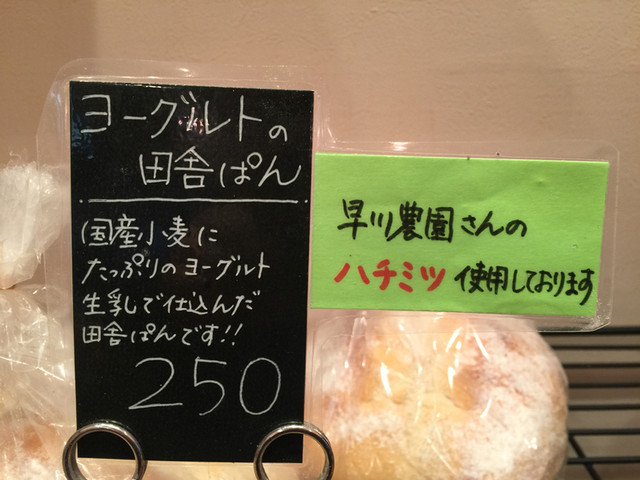 ヨーグルトの
田舎ぱん
国産小麦に
たっぷりのヨーグルト
生乳で仕込んだ
田舎ぱんです!!
250
早川農園さんの
ハチミツ使用しております